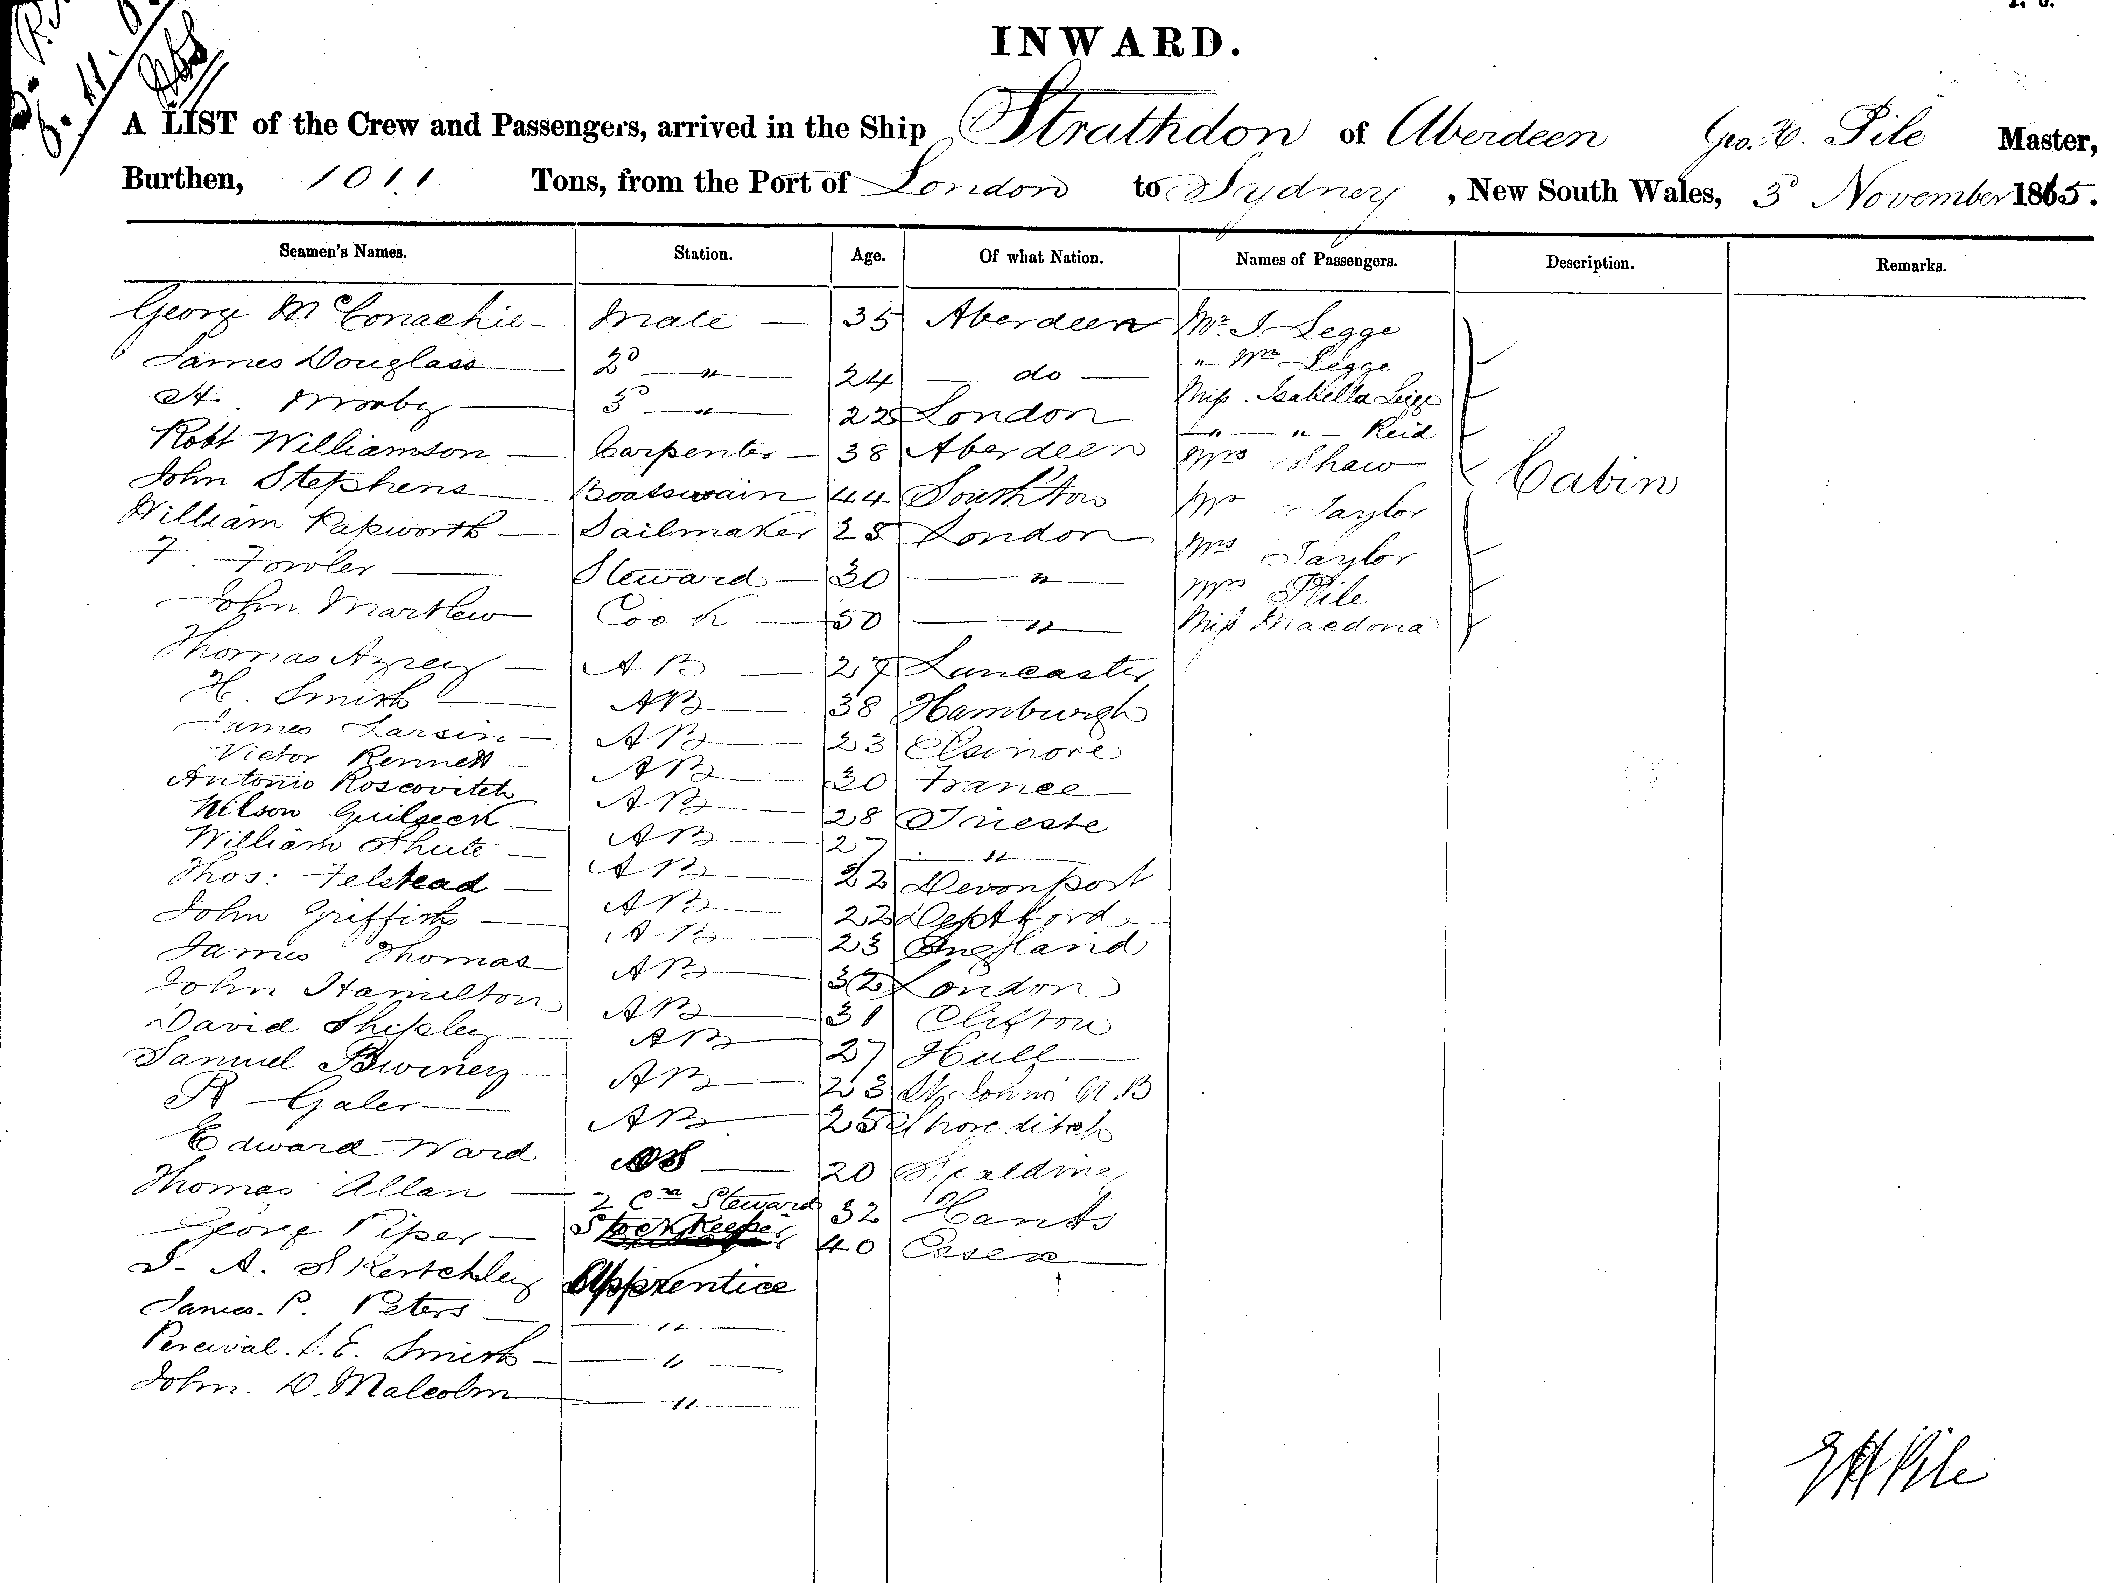 INWARD.
A LIST of the Crew and Passengers, arrived in the Ship Strathdon of Aberdeen Geo. H. Pile Master,
Burthen, 1011 Tons, from the Port of London to Sydney, New South Wales, 3d November 1865.
Seamen's Names. Station. Age. Of what Nation. Names of Passengers. Description. Remarks.
George McConachie Mate 35 Aberdeen Mr. J Legge
James Douglass 2d " 24 do " Legge
H. 3d " 22 London Miss Isabella Legge
Robt Williamson Carpenter 38 Aberdeen " " Reid
John Stephens Boatswain 44 Southton Mrs Shaw Cabin
William Papworth Sailmaker 28 London Mr Taylor
F. Fowler Steward 30 " Mrs Taylor
John Martlew Cook 50 " Mrs Pile
Thomas Azrey AB 27 Lancaster Miss Macdona
H. Smith AB 38 Hamburgh
James Larsin AB 23 Elsinore
Victor Rennett AB 30 France
Antonio Roscovitch AB 28 Trieste
Nilson AB 27 "
William Shute AB 22 Devonport
Thos: Felstead AB 22 Deptford
John Griffiths AB 23 England
James Thomas AB 32 London
John Hamilton AB 31 Clifton
David Shipley AB 27 Hull
Samuel AB 23 St. Johns N.B
R Galer AB 25 Shoreditch
Edward Ward OS 20 Spalding
Thomas Allan 2 Cn Steward 32 Hants
George Piper Storekeeper 40 Essex
S. A. Skertchley Apprentice
James. P. Peters "
Percival. S. E. Smith "
John. D. Malcolm "
G H Pile